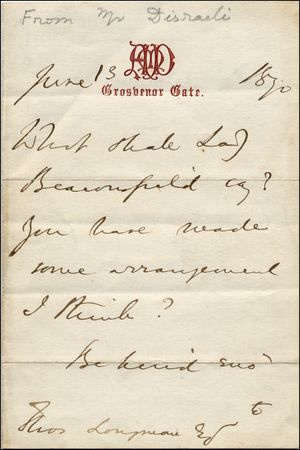 From Mr Disraeli
June 13 1870
Grosvenor Gate.
What shall Lady
Beaconsfield say?
You have made
some arrangement
I think?
Be kind eno'
to
Thos Longman Esq